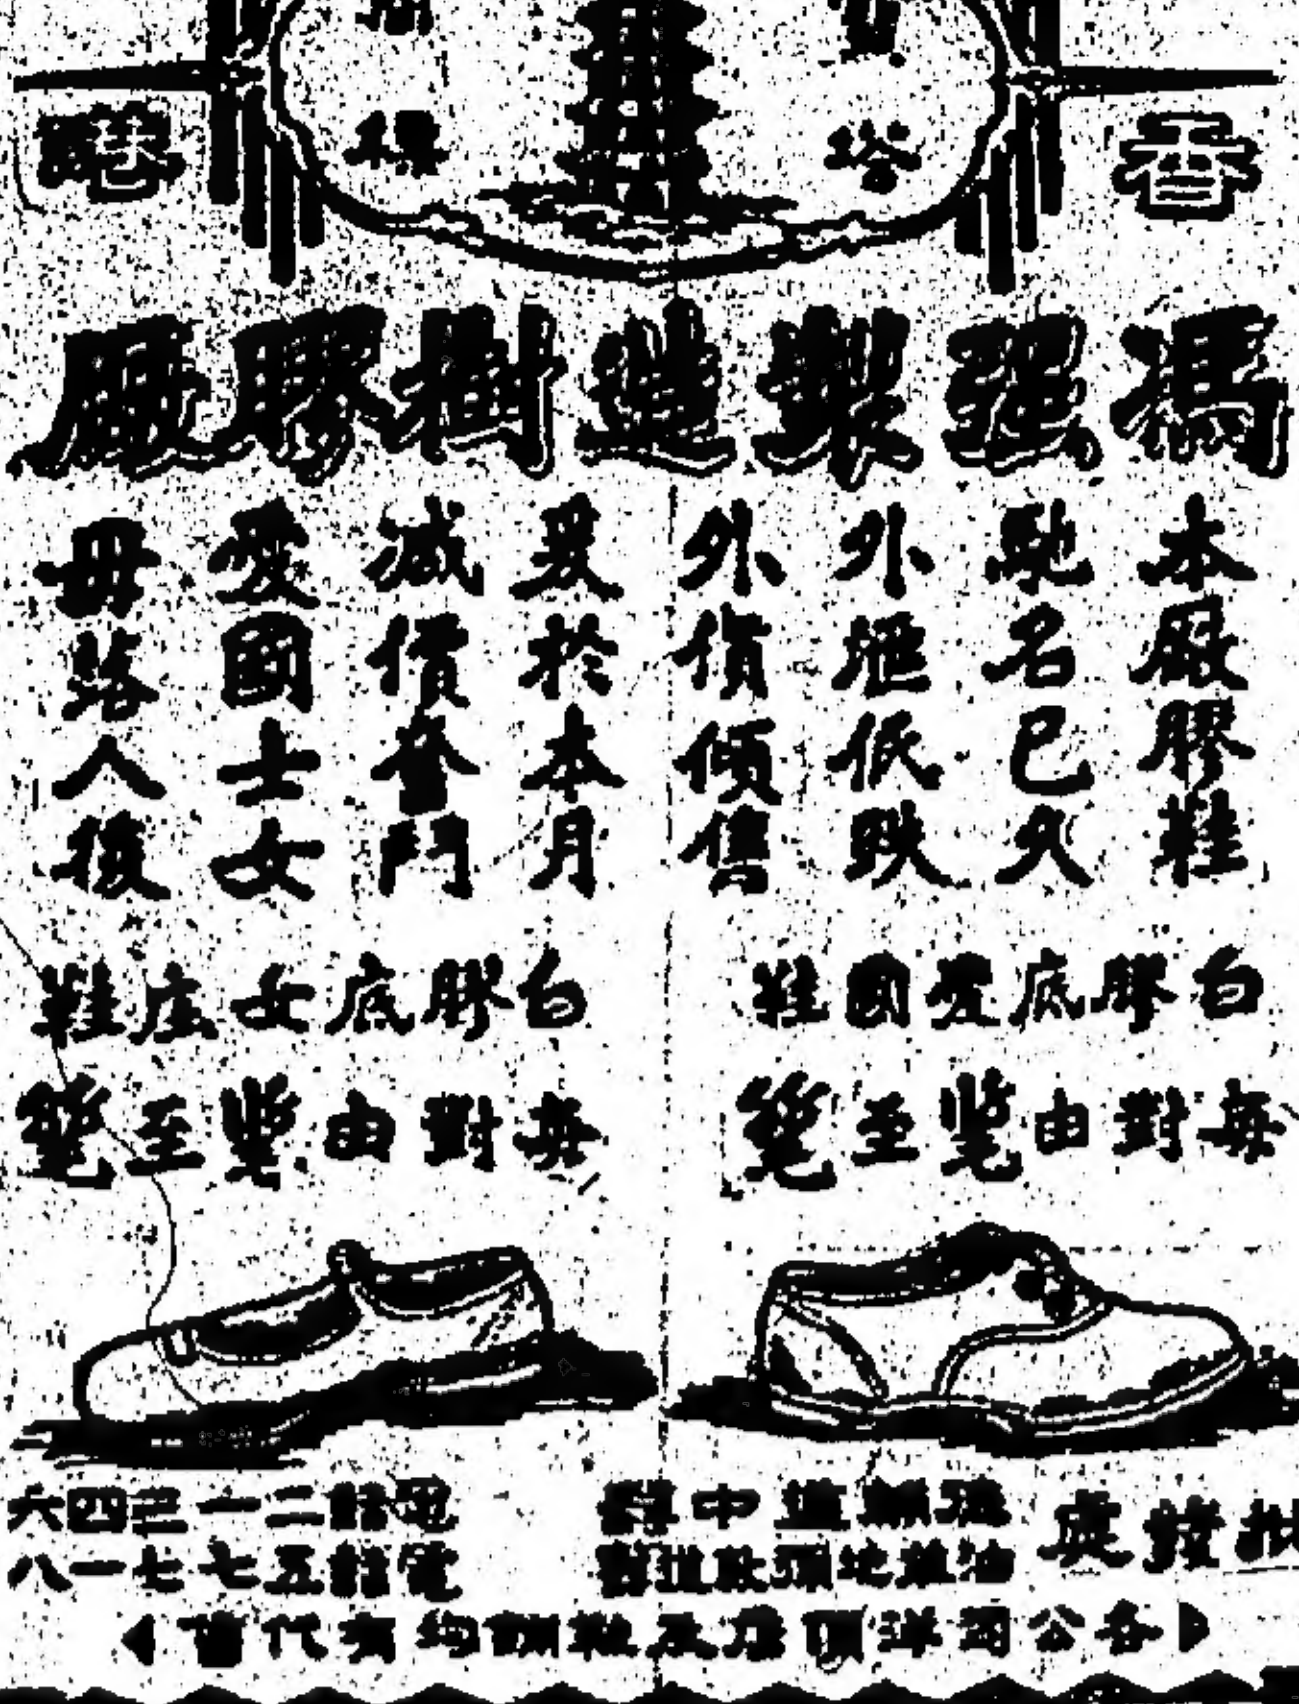 香港
塔
標
馮強製造樹膠廠
本廠膠鞋
馳名已久
外滙低跌
外貨傾售
爰於本月
減價奮鬥
愛國士女
毋落人後
白膠底愛國鞋
每對由 至
白膠底女庄鞋
每對由 至
批發處
中
油蔴地彌敦道
電話二一四六
電話五七七一八
各公司洋 店及鞋 均有代售